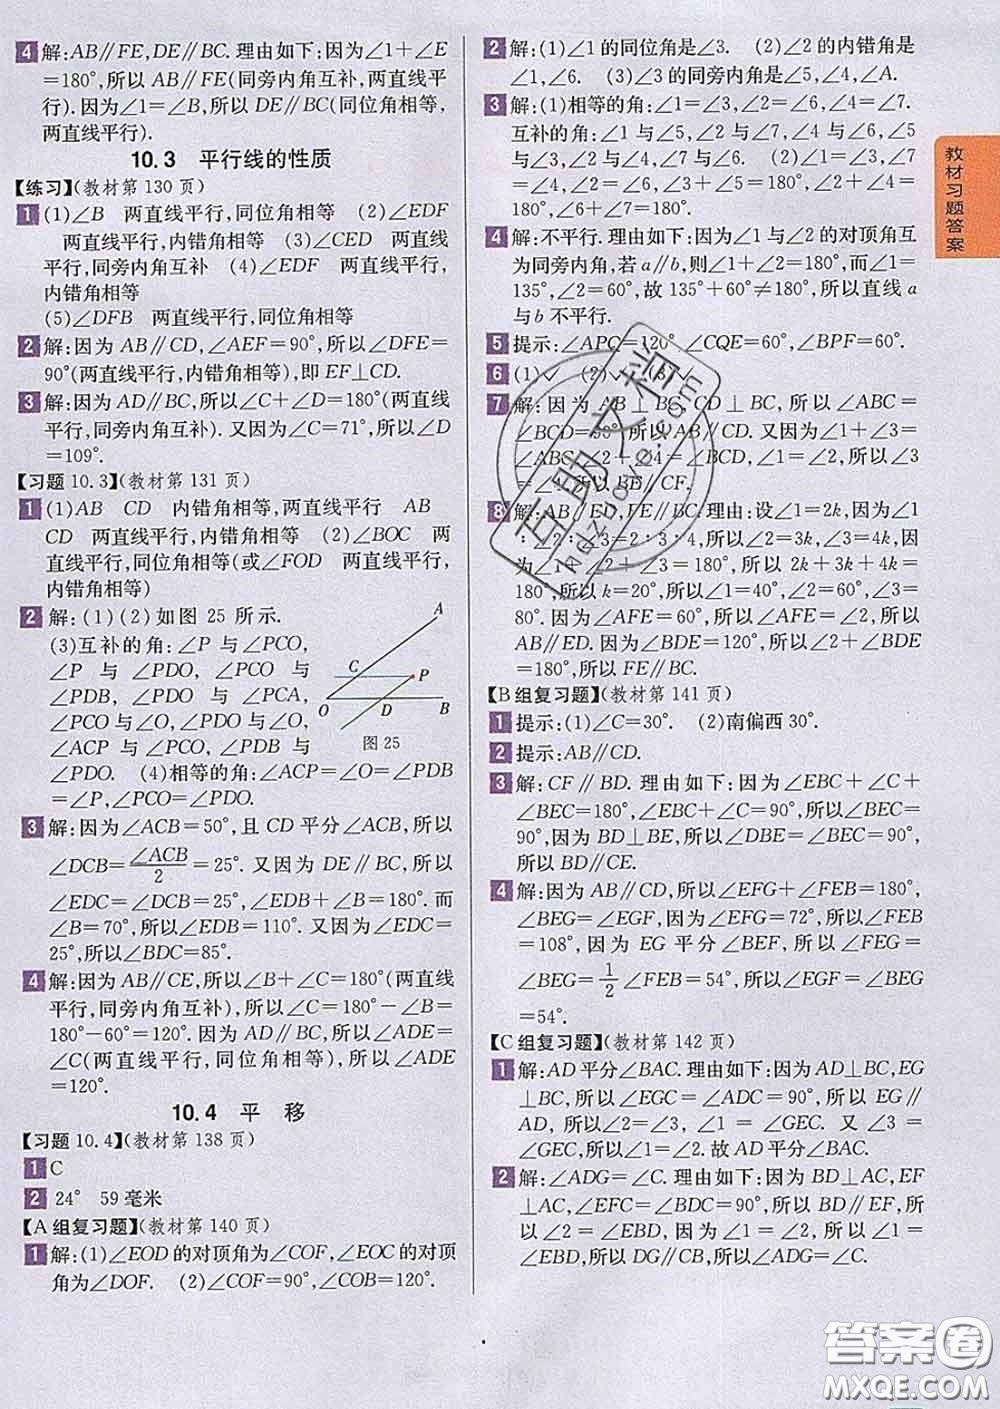 4 解:AB∥FE,DE∥BC. 理由如下:因为∠1+∠E
=180°,所以 AB∥FE(同旁内角互补,两直线平
行). 因为∠1=∠B,所以 DE∥BC(同位角相等,
两直线平行).
10.3 平行线的性质
【练习】(教材第 130 页)
1 (1)∠B 两直线平行,同位角相等 (2)∠EDF
两直线平行,内错角相等 (3)∠CED 两直线平
行,同旁内角互补 (4)∠EDF 两直线平行,
内错角相等
(5)∠DFB 两直线平行,同位角相等
2 解:因为 AB∥CD,∠AEF=90°,所以∠DFE=
90°(两直线平行,内错角相等),即 EF⊥CD.
3 解:因为 AD∥BC,所以∠C+∠D=180°(两直线
平行,同旁内角互补). 又因为∠C=71°,所以∠D
=109°.
【习题 10.3】(教材第 131 页)
1 (1)AB CD 内错角相等,两直线平行 AB
CD 两直线平行,内错角相等 (2)∠BOC 两
直线平行,同位角相等(或∠FOD 两直线平行,
内错角相等)
2 解:(1)(2)如图 25 所示.
(3)互补的角:∠P 与∠PCO,
∠P 与 ∠PDO, ∠PCO 与
∠PDB, ∠PDO 与 ∠PCA,
∠PCO 与∠O,∠PDO 与∠O,
∠ACP 与 ∠PCO, ∠PDB 与
∠PDO. (4)相等的角:∠ACP=∠O=∠PDB
=∠P,∠PCO=∠PDO.
A
C
P
O
D
B
图 25
3 解:因为∠ACB=50°,且 CD 平分∠ACB,所以
∠DCB=∠ACB/2=25°. 又因为 DE∥BC,所以
∠EDC=∠DCB=25°,∠EDB+∠B=180°. 而
∠B=70°,所以∠EDB=110°. 又因为∠EDC=
25°,所以∠BDC=85°.
4 解:因为 AB∥CE,所以∠B+∠C=180°(两直线
平行,同旁内角互补),所以∠C=180°-∠B=
180°-60°=120°. 因为 AD∥BC,所以∠ADE=
∠C(两直线平行,同位角相等),所以∠ADE
=120°.
10.4 平 移
【习题 10.4】(教材第 138 页)
1 C
2 24° 59 毫米
【A 组复习题】(教材第 140 页)
1 解:(1)∠EOD 的对顶角为∠COF,∠EOC 的对顶
角为∠DOF. (2)∠COF=90°,∠COB=120°.
2 解:(1)∠1 的同位角是∠3. (2)∠2 的内错角是
∠1,∠6. (3)∠3 的同旁内角是∠5,∠4,∠A.
3 解:(1)相等的角:∠1=∠3=∠4=∠7.
互补的角:∠1 与∠5,∠1 与∠2,∠1 与∠6,
∠3 与∠5,∠2 与∠3,∠3 与∠6,∠4 与∠5,
∠4 与∠2,∠4 与∠6,∠7 与∠5,∠7 与∠2,
∠7 与∠6. (2)∠1+∠3+∠7 与∠2+∠5+
∠4,∠4+∠2+∠6=∠3+∠5=180°,∠1+
∠6=∠7+∠6=180°.
4 解:不平行. 理由如下:因为∠1 与∠2 的对顶角互
为同旁内角,若 a∥b,则∠1+∠2=180°,而∠1=
135°,∠2=60°,故 135°+60°≠180°,所以直线 a
与 b 不平行.
5 提示:∠APQ=120°,∠CQE=60°,∠BPF=60°.
6 (1)✓ (2)✓ (3)✓
7 解:因为 AB⊥BC,CD⊥BC,所以∠ABC=
∠BCD=90°,所以 AB∥CD. 又因为∠1+∠3=
∠ABC,∠2+∠4=∠BCD,∠1=∠2,所以∠3
=∠4,所以 BE∥CF.
8 解:AB∥ED,FE∥BC. 理由:设∠1=2k,因为∠1
∶∠2∶∠3=2∶3∶4,所以∠2=3k,∠3=4k,
因为∠1+∠2+∠3=180°,所以 2k+3k+4k=
180°,所以 k=20°,所以∠1=40°,∠2=60°,∠3=
80°. 因为∠AFE=60°,所以∠AFE=∠2,所以
AB∥ED. 因为∠BDE=120°,所以∠2+∠BDE
=180°,所以 FE∥BC.
【B 组复习题】(教材第 141 页)
1 提示:(1)∠C=30°. (2)南偏西 30°.
2 提示:AB∥CD.
3 解:CF∥BD. 理由如下:因为∠EBC+∠C+
∠BEC=180°,∠EBC+∠C=90°,所以∠BEC=
90°. 因为 BD⊥BE,所以∠DBE=∠BEC=90°,
所以 BD∥CE.
4 解:因为 AB∥CD,所以∠EFG+∠FEB=180°,
∠BEG=∠EGF,因为∠EFG=72°,所以∠FEB
=108°,因为 EG 平分∠BEF,所以∠FEG=
∠BEG=1/2∠FEB=54°,所以∠EGF=∠BEG
=54°.
【C 组复习题】(教材第 142 页)
1 解:AD 平分∠BAC. 理由如下:因为 AD⊥BC,EG
⊥BC,所以∠EGC=∠ADC=90°,所以 EG∥
AD,所以∠2=∠3,∠1=∠GEC. 又∠3=
∠GEC,所以∠1=∠2. 故 AD 平分∠BAC.
2 解:∠ADG=∠C. 理由如下:因为 BD⊥AC,EF
⊥AC,∠EFC=∠BDC=90°,所以 BD∥EF,所
以∠2=∠EBD,因为∠1=∠2,所以∠1=
∠EBD,所以 DG∥CB,所以∠ADG=∠C.
教材习题答案
互助文档
hdzuowe.com
答案圈
MXQE.COM